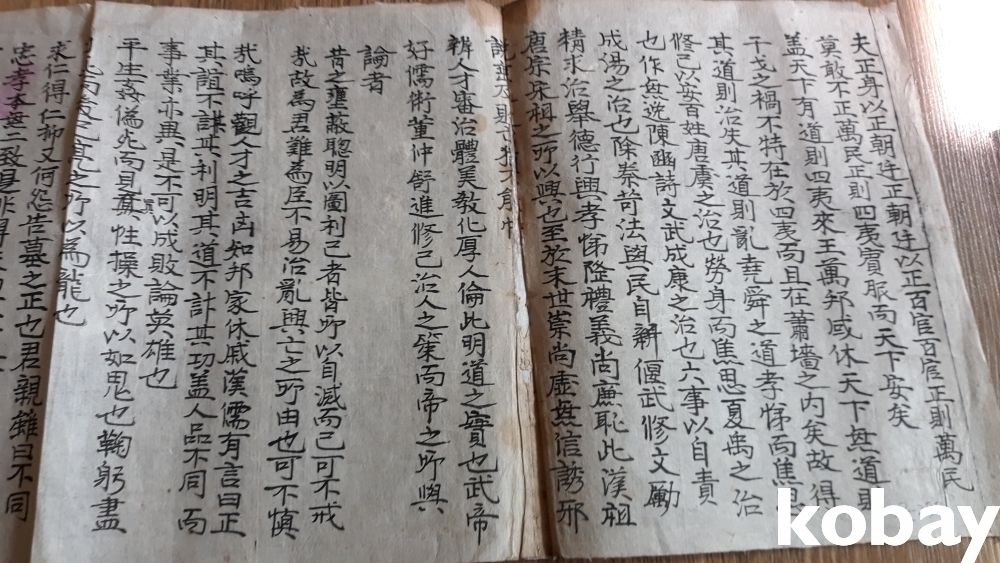 夫正身以正朝廷正朝廷以正百官百官正則萬民
莫敢不正萬民正則四夷賓服而天下安矣
盖天下有道則四夷來王萬邦咸休天下無道則
干戈之禍不特在於四夷而且在蕭墻之內矣故得
其道則治失其道則亂堯舜之道孝悌而焦思
修己以安百姓唐虞之治也勞身而焦思夏禹之治
也作無逸陳豳詩文武成康之治也六事以自責
成湯之治也除秦苛法與民自新偃武修文勵
精求治舉德行興孝悌隆禮義尚廉恥此漢祖
唐宗宋祖之所以興也至於末世崇尚虛無信誘邪
說
辨人才審治體美敎化厚人倫此明道之實也武帝
好儒術董仲舒進修己治人之策而帝之所與
論者
昔之壅蔽聰明以圖利己者皆所以自滅而已可不戒
哉故爲君難爲臣不易治亂興亡之所由也可不愼
哉嗚呼觀人才之吉凶知邦家休戚漢儒有言曰正
其誼不謀其利明其道不計其功盖人品不同而
事業亦異是不可以成敗論英雄也
平生姦僞死而見眞性操之所以如鬼也鞠躬盡
之所以爲龍也
求仁得仁抑又何怨告墓之正也君親雖曰不同
忠孝本無二致
kobay